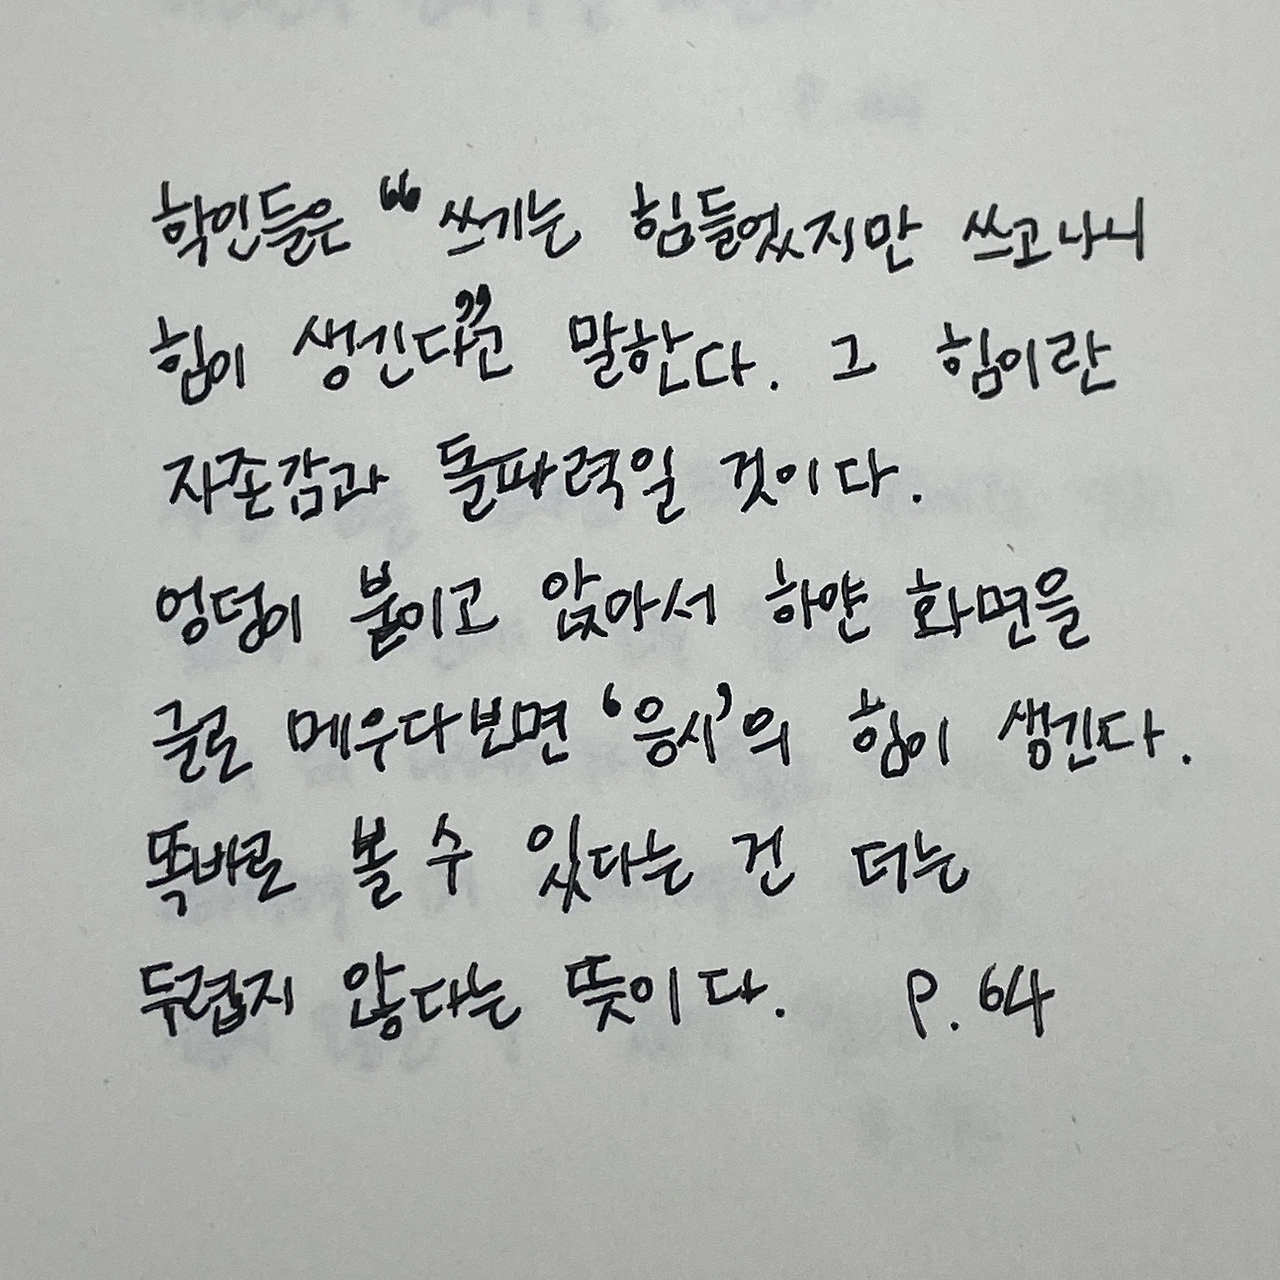 학인들은 “쓰기는 힘들었지만 쓰고나니
힘이 생긴다”고 말한다. 그 힘이란
자존감과 돌파력일 것이다.
엉덩이 붙이고 앉아서 하얀 화면을
글로 메우다보면 ‘응시’의 힘이 생긴다.
똑바로 볼 수 있다는 건 더는
두렵지 않다는 뜻이다. P. 64